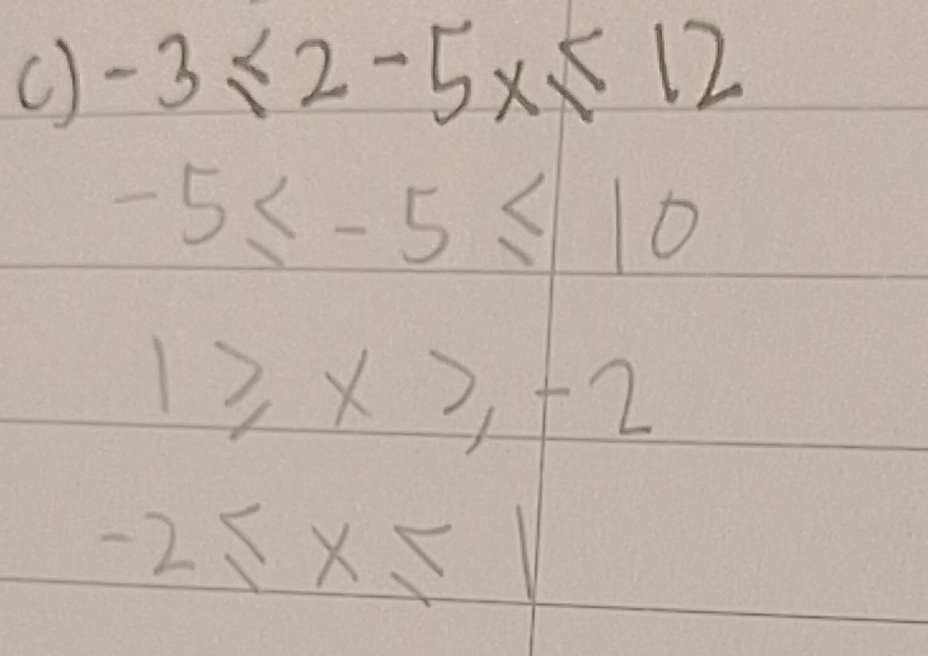 c) -3 ≤ 2 - 5x ≤ 12
-5 ≤ -5 ≤ 10
1 ≥ x ≥ -2
-2 ≤ x ≤ 1